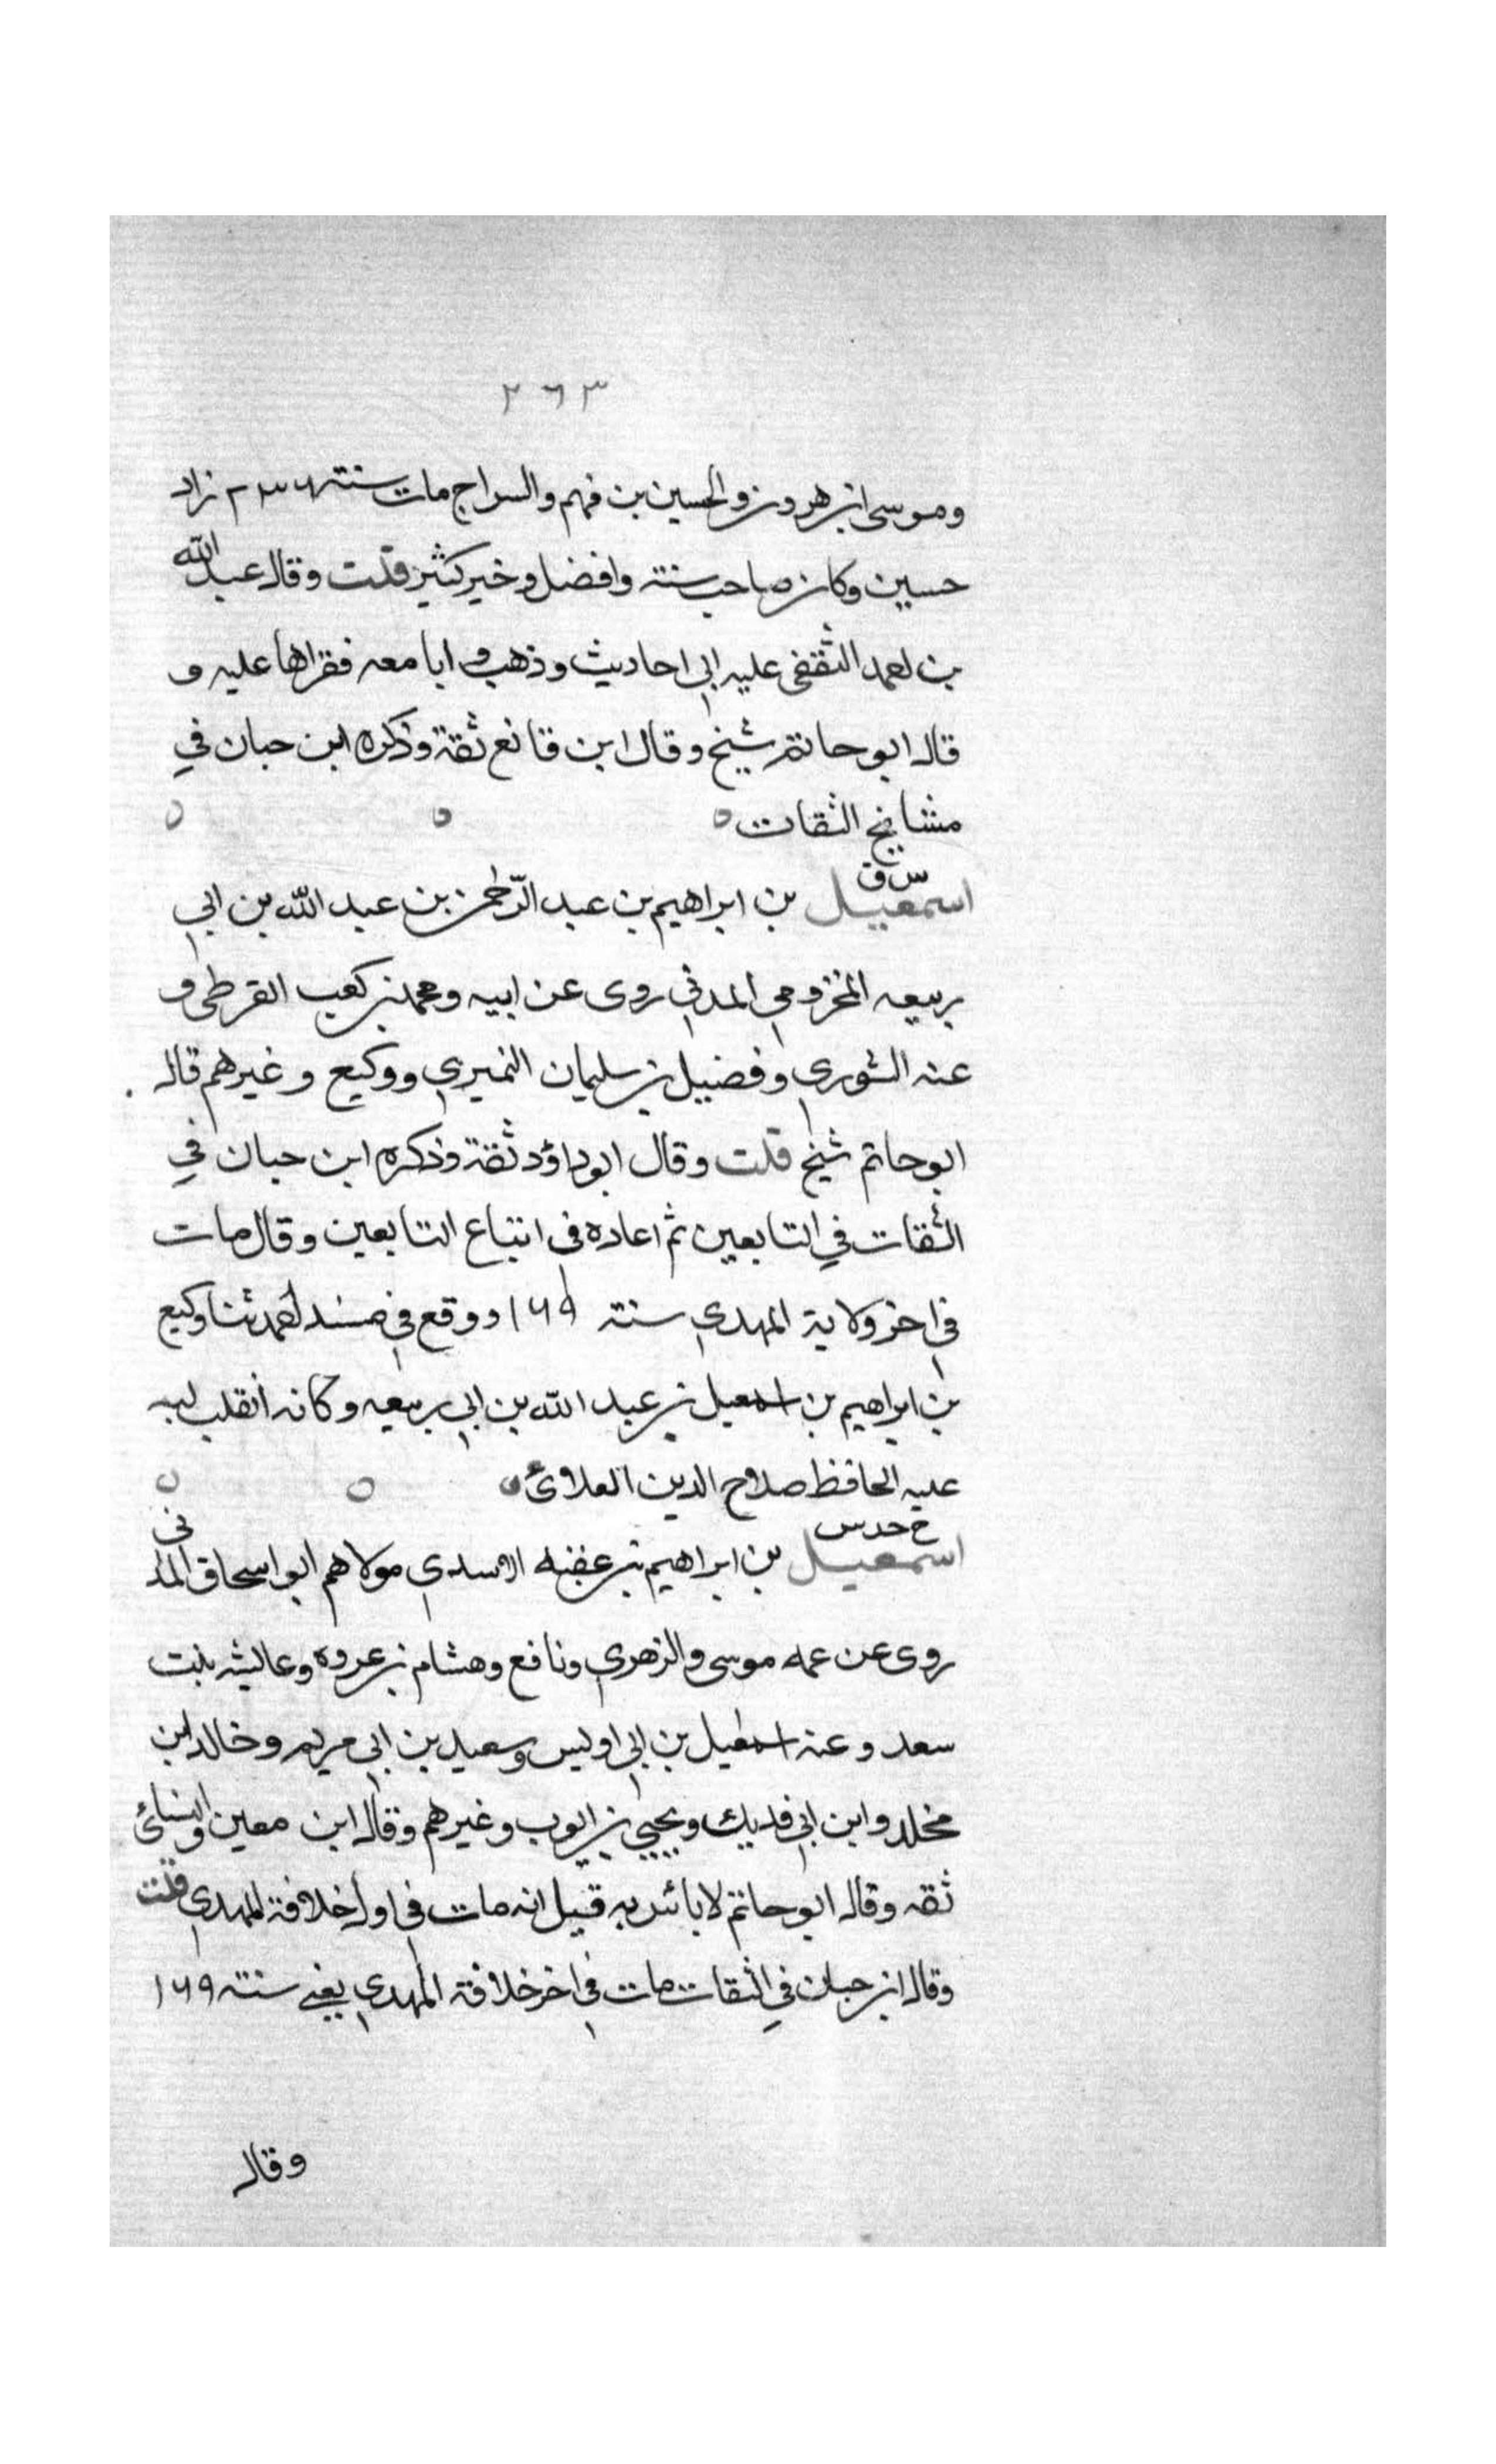 ٢٦٣
وموسى ابن هرون والحسين بن فهم والسراج مات سنته ٢٣٦ زاد
حسين وكان صاحب سنته وافضل وخير كثير قلت وقال عبد الله
بن احمد الثقفى عليه الى احاديث وذهب وابا معه فقراها عليه و
قال ابو حاتم شيخ وقال ابن قانع ثقة وذكره ابن حبان في
مشايخ الثقات
س ق
اسمعيل بن ابراهيم بن عبد الرحمن بن عبد الله بن ابي
ربيعه المخزومي المدني روى عن ابيه ومحمد بن كعب القرظى و
عنه الثوري وفضيل بن سليمان النميري ووكيع وغيرهم قال
ابو حاتم شيخ قلت وقال ابو داؤد ثقة وذكره ابن حبان في
الثقات في التابعين ثم اعاده في اتباع التابعين وقال مات
في اخر ولاية المهدي سنته ١٦٩ ووقع في مسند احمد ثنا وكيع
بن ابراهيم بن اسمعيل بن عبد الله بن ابي ربيعه وكانه انقلب لبه
عليه الحافظ صلاح الدين العلائ
خ حد س
اسمعيل بن ابراهيم بن عقبه الاسدي مولاهم ابو اسحاق المدنى
روى عن عمه موسى والزهري ونافع وهشام بن عروه وعايشه بنت
سعد وعنه اسمعيل بن ابي اويس وسعيد بن ابي مريم وخالد ابن
مخلد وابن ابي فديك ويحيى بن ايوب وغيرهم وقال ابن معين والنسائ
ثقه وقال ابو حاتم لا بائس به قيل انه مات في اول خلافة المهدي قلت
وقال ابن حبان في الثقات مات في اخر خلافة المهدي يعني سنته ١٦٩
وقال